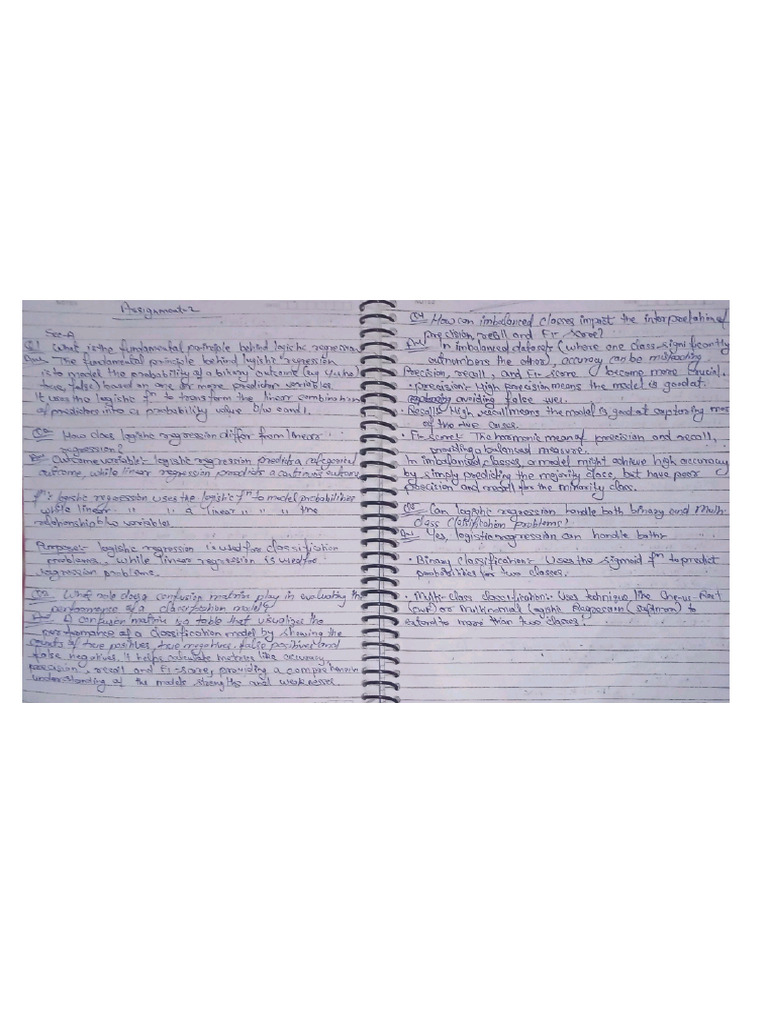 Assignment-2
Sec-A
Q1 What is the fundamental principle behind logistic regression
Ans The fundamental principle behind logistic regression
is to model the probability of a binary outcome (eg yes/no
true, false) based on one or more predictor variables.
It uses the logistic fn to transform the linear combination
of predictors into a probability value b/w 0 and 1.
Q2 How does logistic regression differ from linear
regression?
Outcome variable:- logistic regression predicts a categorical
outcome, while linear regression predicts a continuous outcome
fn:- logistic regression uses the logistic fn to model probabilities
while linear " " a linear " " " the
relationship b/w variables.
Purpose:- logistic regression is used for classification
problems, while linear regression is used for
regression problems.
Q3 What role does a confusion matrix play in evaluating the
performance of a classification model?
A confusion matrix is a table that visualizes the
performance of a classification model by showing the
counts of true positives, true negatives, false positives and
false negatives. It helps calculate metrics like accuracy
precision, recall and F1-score, providing a comprehensive
understanding of the models strengths and weaknesses.
Q4 How can imbalanced classes impact the interpretation of
precision, recall and F1- score?
Ans In imbalanced datasets (where one class significantly
outnumbers the other), accuracy can be misleading
Precision, recall, and F1- score become more crucial.
• precision:- High precision means the model is good at
avoiding false +ves.
• Recall:- High recall means the model is good at capturing most
of the true cases.
• F1-score:- The harmonic mean of precision and recall,
providing a balanced measure.
In imbalanced classes, a model might achieve high accuracy
by simply predicting the majority class, but have poor
precision and recall for the minority class.
Q5 Can logistic regression handle both binary and Multi-
class classification problems?
Ans Yes, logistic regression can handle both:
• Binary classification:- Uses the sigmoid fn to predict
probabilities for two classes.
• Multi-class classification:- Uses technique like One-vs-Rest
(OvR) or Multinomial Logistic Regression (softmax) to
extend to more than two classes.